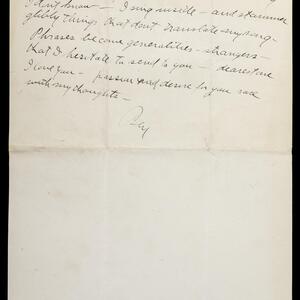 I don't know — I sing inside — and stammer
glibly things that don't translate — my song —
Phrases become generalities — strangers —
that I hesitate to send to you — dearest one
I love you — passion and desire for you race
with my thoughts —